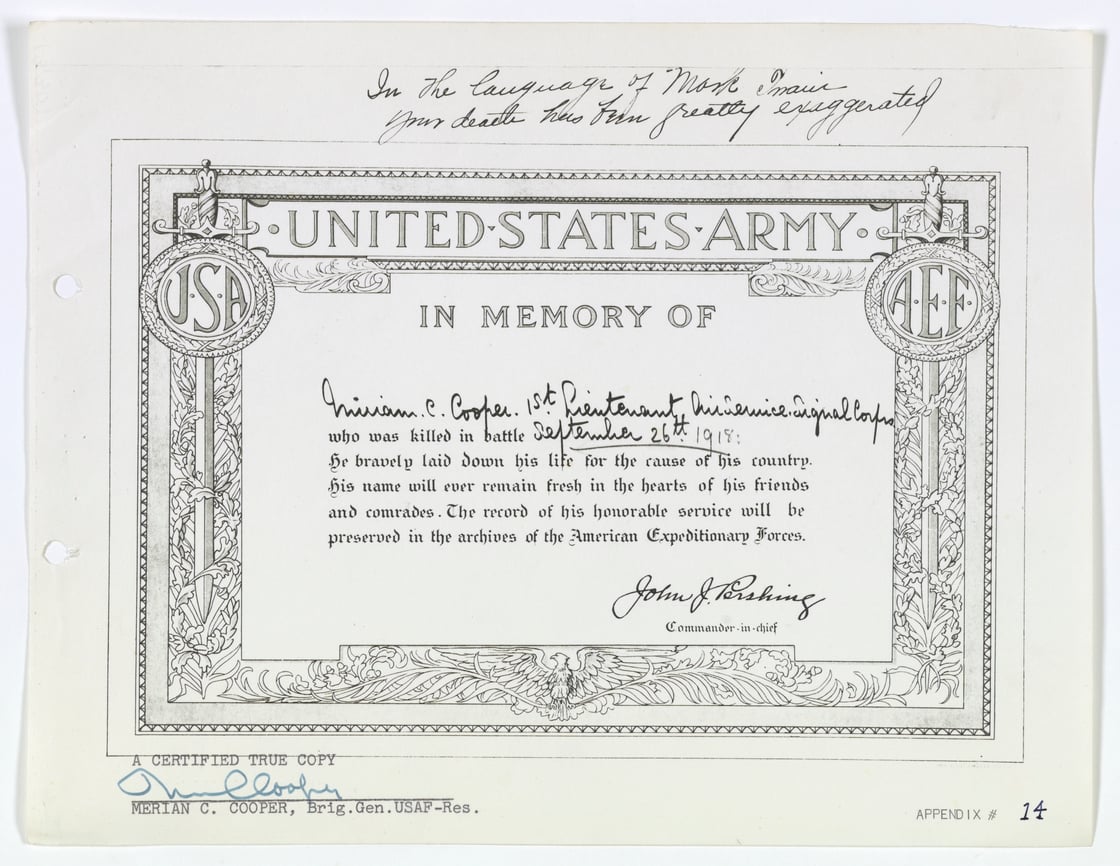 In the language of Mark Twain
your death has been greatly exaggerated
·UNITED·STATES·ARMY·
U·S·A
A·E·F·
IN MEMORY OF
Miriam. C. Cooper. 1st Lieutenant, Air Service. Signal Corps
who was killed in battle September 26th 1918:
He bravely laid down his life for the cause of his country.
His name will ever remain fresh in the hearts of his friends
and comrades. The record of his honorable service will be
preserved in the archives of the American Expeditionary Forces.
John J. Pershing
Commander-in-chief
A CERTIFIED TRUE COPY
Merian C Cooper
MERIAN C. COOPER, Brig.Gen.USAF-Res.
APPENDIX # 14